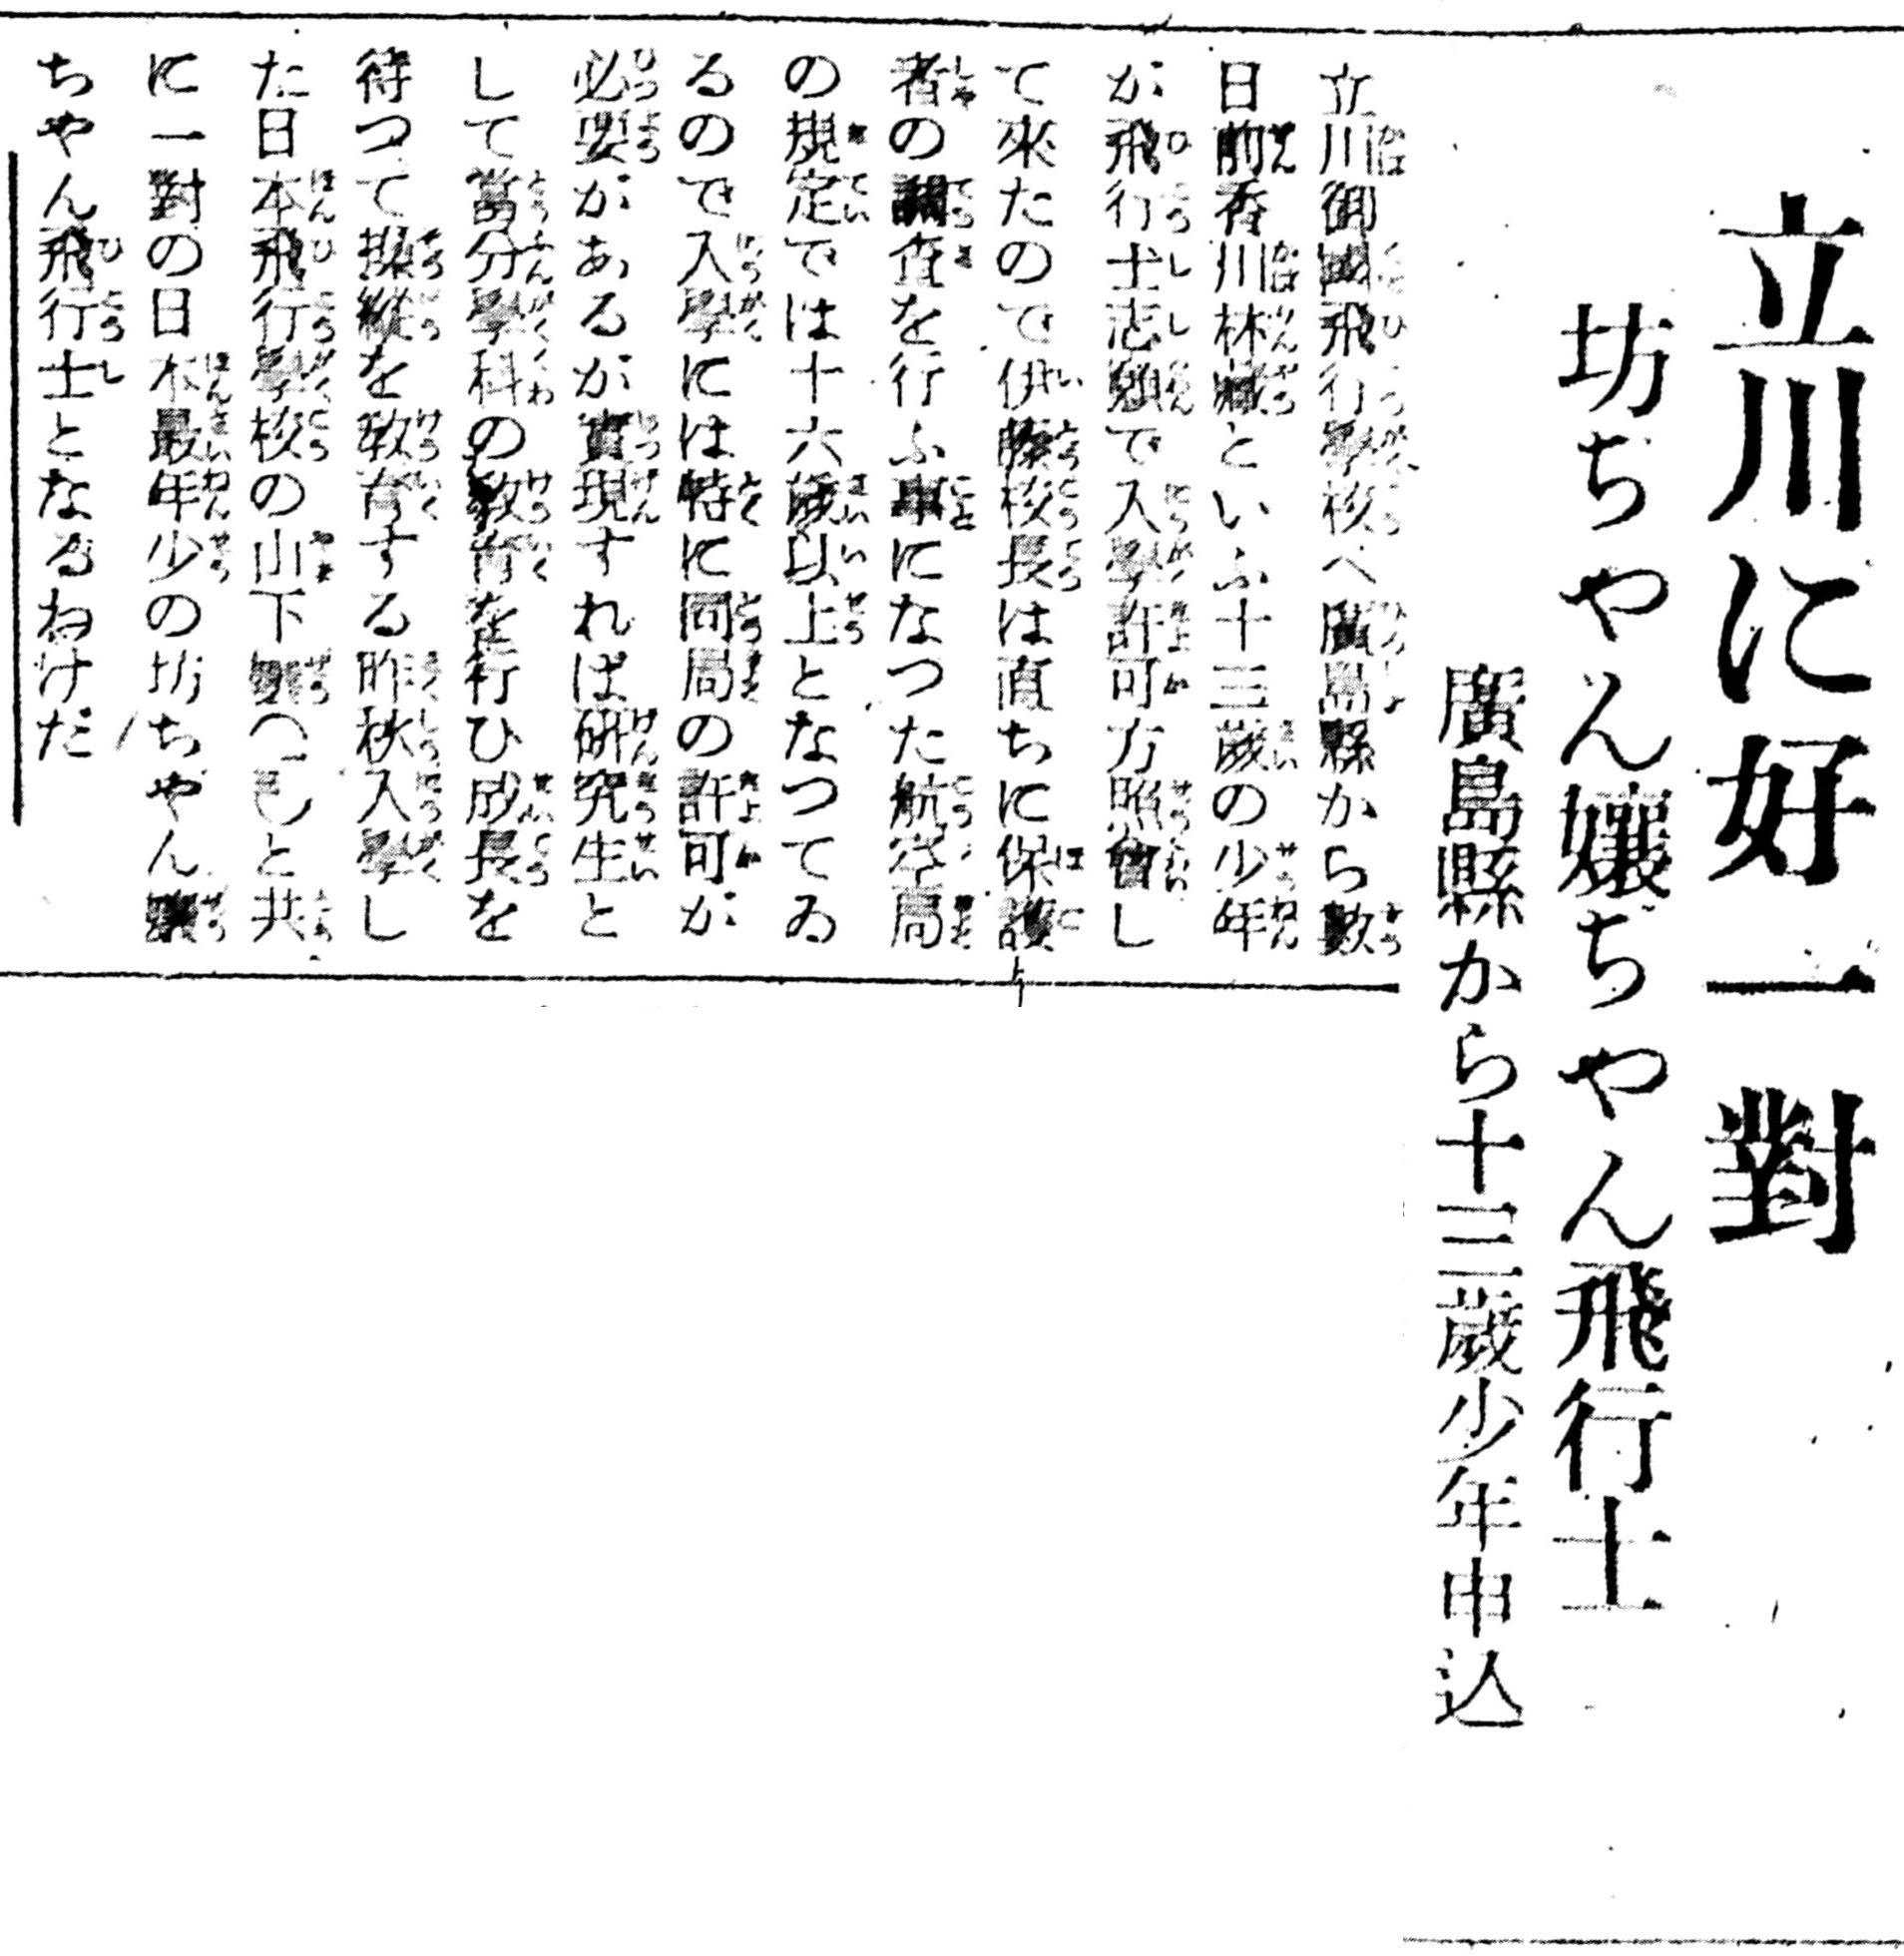 立川に好一對
坊ちやん孃ちやん飛行士
廣島縣から十三歲少年申込
立川御國飛行學校へ廣島縣から數
日前香川林藏といふ十三歲の少年
が飛行士志願で入學許可方照會し
て來たので伊藤校長は直ちに保護
者の調査を行ふ事になつた航空局
の規定では十六歲以上となつてゐ
るので入學には特に同局の許可が
必要があるが實現すれば硏究生と
して當分學科の敎育を行ひ成長を
待つて操縱を敎育する昨秋入學し
た日本飛行學校の山下孃と共
に一對の日本最年少の坊ちやん孃
ちやん飛行士となるわけだ